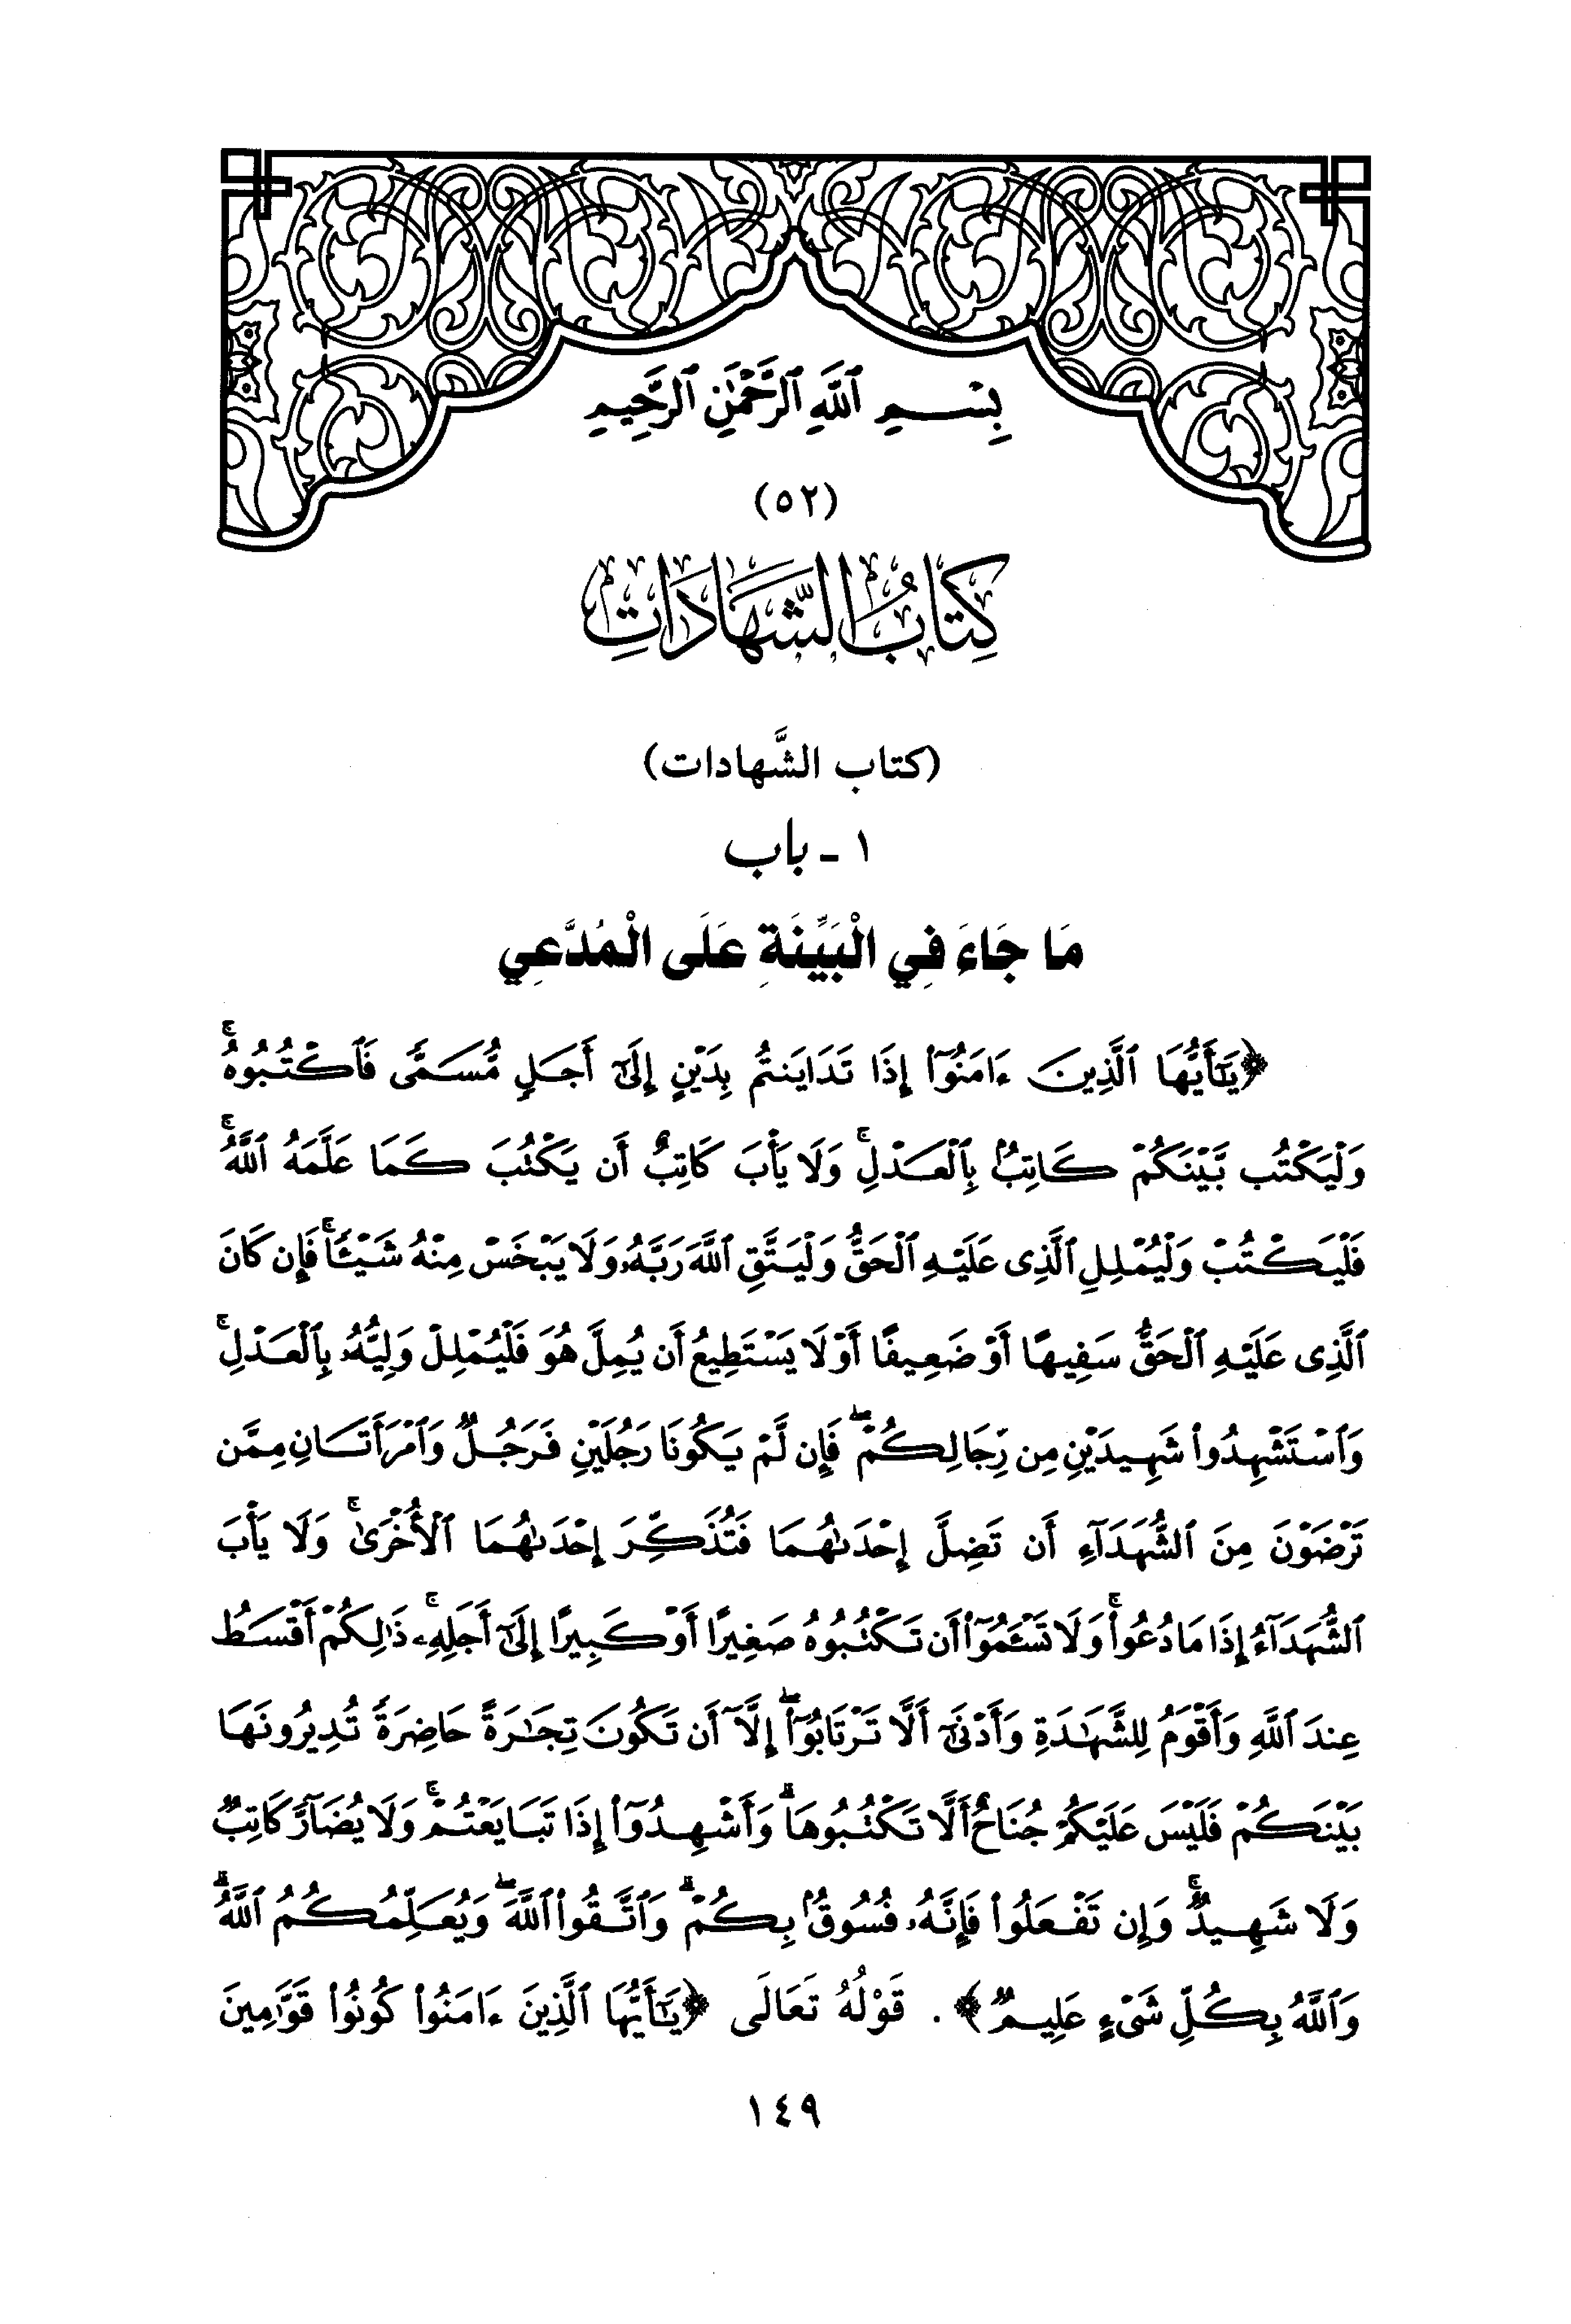 بِسْمِ ٱللَّهِ ٱلرَّحْمَٰنِ ٱلرَّحِيمِ
(٥٢)
كِتَابُ الشَّهَادَاتِ
(كتاب الشَّهادات)
١ - باب
مَا جَاءَ فِي الْبَيِّنَةِ عَلَى الْمُدَّعِي
﴿يَٰٓأَيُّهَا ٱلَّذِينَ ءَامَنُوٓا۟ إِذَا تَدَايَنتُم بِدَيْنٍ إِلَىٰٓ أَجَلٍ مُّسَمًّى فَٱكْتُبُوهُ ۚ
وَلْيَكْتُب بَّيْنَكُمْ كَاتِبٌۢ بِٱلْعَدْلِ ۚ وَلَا يَأْبَ كَاتِبٌ أَن يَكْتُبَ كَمَا عَلَّمَهُ ٱللَّهُ ۚ
فَلْيَكْتُبْ وَلْيُمْلِلِ ٱلَّذِى عَلَيْهِ ٱلْحَقُّ وَلْيَتَّقِ ٱللَّهَ رَبَّهُۥ وَلَا يَبْخَسْ مِنْهُ شَيْـًٔا ۚ فَإِن كَانَ
ٱلَّذِى عَلَيْهِ ٱلْحَقُّ سَفِيهًا أَوْ ضَعِيفًا أَوْ لَا يَسْتَطِيعُ أَن يُمِلَّ هُوَ فَلْيُمْلِلْ وَلِيُّهُۥ بِٱلْعَدْلِ ۚ
وَٱسْتَشْهِدُوا۟ شَهِيدَيْنِ مِن رِّجَالِكُمْ ۖ فَإِن لَّمْ يَكُونَا رَجُلَيْنِ فَرَجُلٌ وَٱمْرَأَتَانِ مِمَّن
تَرْضَوْنَ مِنَ ٱلشُّهَدَآءِ أَن تَضِلَّ إِحْدَىٰهُمَا فَتُذَكِّرَ إِحْدَىٰهُمَا ٱلْأُخْرَىٰ ۚ وَلَا يَأْبَ
ٱلشُّهَدَآءُ إِذَا مَا دُعُوا۟ ۚ وَلَا تَسْـَٔمُوٓا۟ أَن تَكْتُبُوهُ صَغِيرًا أَوْ كَبِيرًا إِلَىٰٓ أَجَلِهِۦ ۚ ذَٰلِكُمْ أَقْسَطُ
عِندَ ٱللَّهِ وَأَقْوَمُ لِلشَّهَٰدَةِ وَأَدْنَىٰٓ أَلَّا تَرْتَابُوٓا۟ ۖ إِلَّآ أَن تَكُونَ تِجَٰرَةً حَاضِرَةً تُدِيرُونَهَا
بَيْنَكُمْ فَلَيْسَ عَلَيْكُمْ جُنَاحٌ أَلَّا تَكْتُبُوهَا ۗ وَأَشْهِدُوٓا۟ إِذَا تَبَايَعْتُمْ ۚ وَلَا يُضَآرَّ كَاتِبٌ
وَلَا شَهِيدٌ ۚ وَإِن تَفْعَلُوا۟ فَإِنَّهُۥ فُسُوقٌۢ بِكُمْ ۗ وَٱتَّقُوا۟ ٱللَّهَ ۖ وَيُعَلِّمُكُمُ ٱللَّهُ ۗ
وَٱللَّهُ بِكُلِّ شَىْءٍ عَلِيمٌ﴾ . قَوْلُهُ تَعَالَى ﴿يَٰٓأَيُّهَا ٱلَّذِينَ ءَامَنُوا۟ كُونُوا۟ قَوَّٰمِينَ
١٤٩